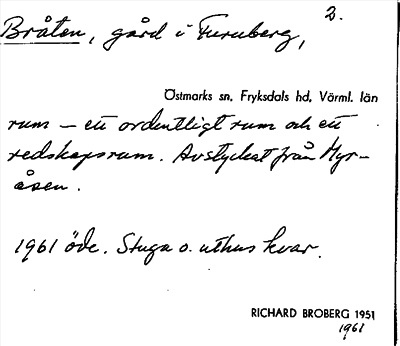 2.
Bråten, gård i Furuberg,
Östmarks sn, Fryksdals hd, Värml. län
rum – ett ordentligt rum och ett
redskapsrum. Avstyckat från Myr-
åsen.
1961 öde. Stuga o. uthus kvar.
RICHARD BROBERG 1951
1961